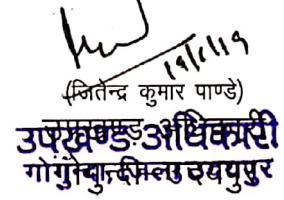 19/1/19
(जितेन्द्र कुमार पाण्डे)
उपखण्ड अधिकारी
उपखण्ड अधिकारी
गोगुन्दा, जिला उदयपुर